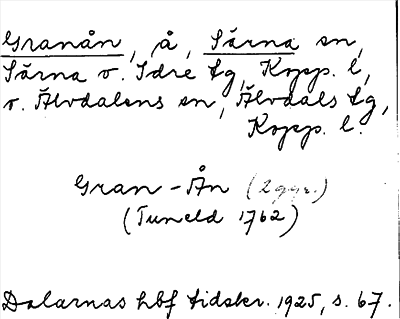 Granån, å, Särna sn,
Särna o. Idre tg, Kopp. l,
o. Älvdalens sn, Älvdals tg,
Kopp. l.
Gran-Ån (2 ggr.)
(Tuneld 1762)
Dalarnas hbf tidskr. 1925, s. 67.